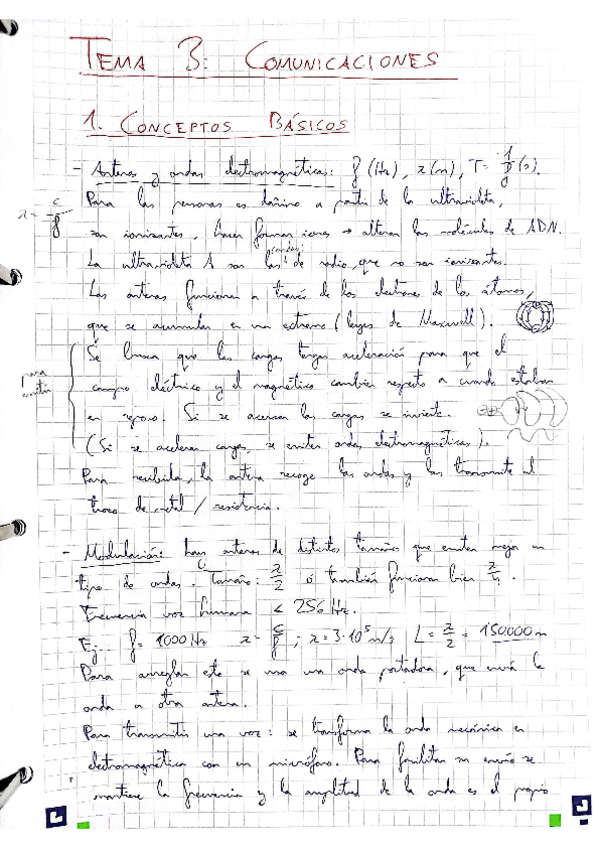 TEMA 3: COMUNICACIONES
1. CONCEPTOS BÁSICOS
- Antenas y ondas electromagnéticas: f (Hz), λ(m), T= 1/f (s).
λ = c/f
Para las personas es dañino a partir de la ultravioleta,
son ionizantes, hacen formar iones → alteran las moléculas de ADN.
La ultravioleta A son las ondas de radio, que no son ionizantes.
Las antenas funcionan a través de los electrones de los átomos,
que se acumulan en un extremo (leyes de Maxwell).
Para emitir
Se busca que las cargas tengan aceleración para que el
campo eléctrico y el magnético cambien respecto a cuando estaban
en reposo. Si se acercan las cargas se invierte.
(Si se aceleran cargas, se emiten ondas electromagnéticas).
Para recibirla, la antena recoge las ondas y las transmite al
trozo de metal / resistencia.
- Modulación: hay antenas de distintos tamaños que emiten mejor un
tipo de ondas. Tamaño: λ/2 ó también funcionan bien λ/4.
Frecuencia voz humana < 256 Hz.
Ej.. f= 1000 Hz λ= c/f ; λ=3·10⁵ m/s L= λ/2 = 150000 m
Para arreglar esto se usa una onda portadora, que envía la
onda a otra antena.
Para transmitir una voz: se transforma la onda mecánica en
electromagnética con un micrófono. Para facilitar su envío se
mantiene la frecuencia y la amplitud de la onda es el propio